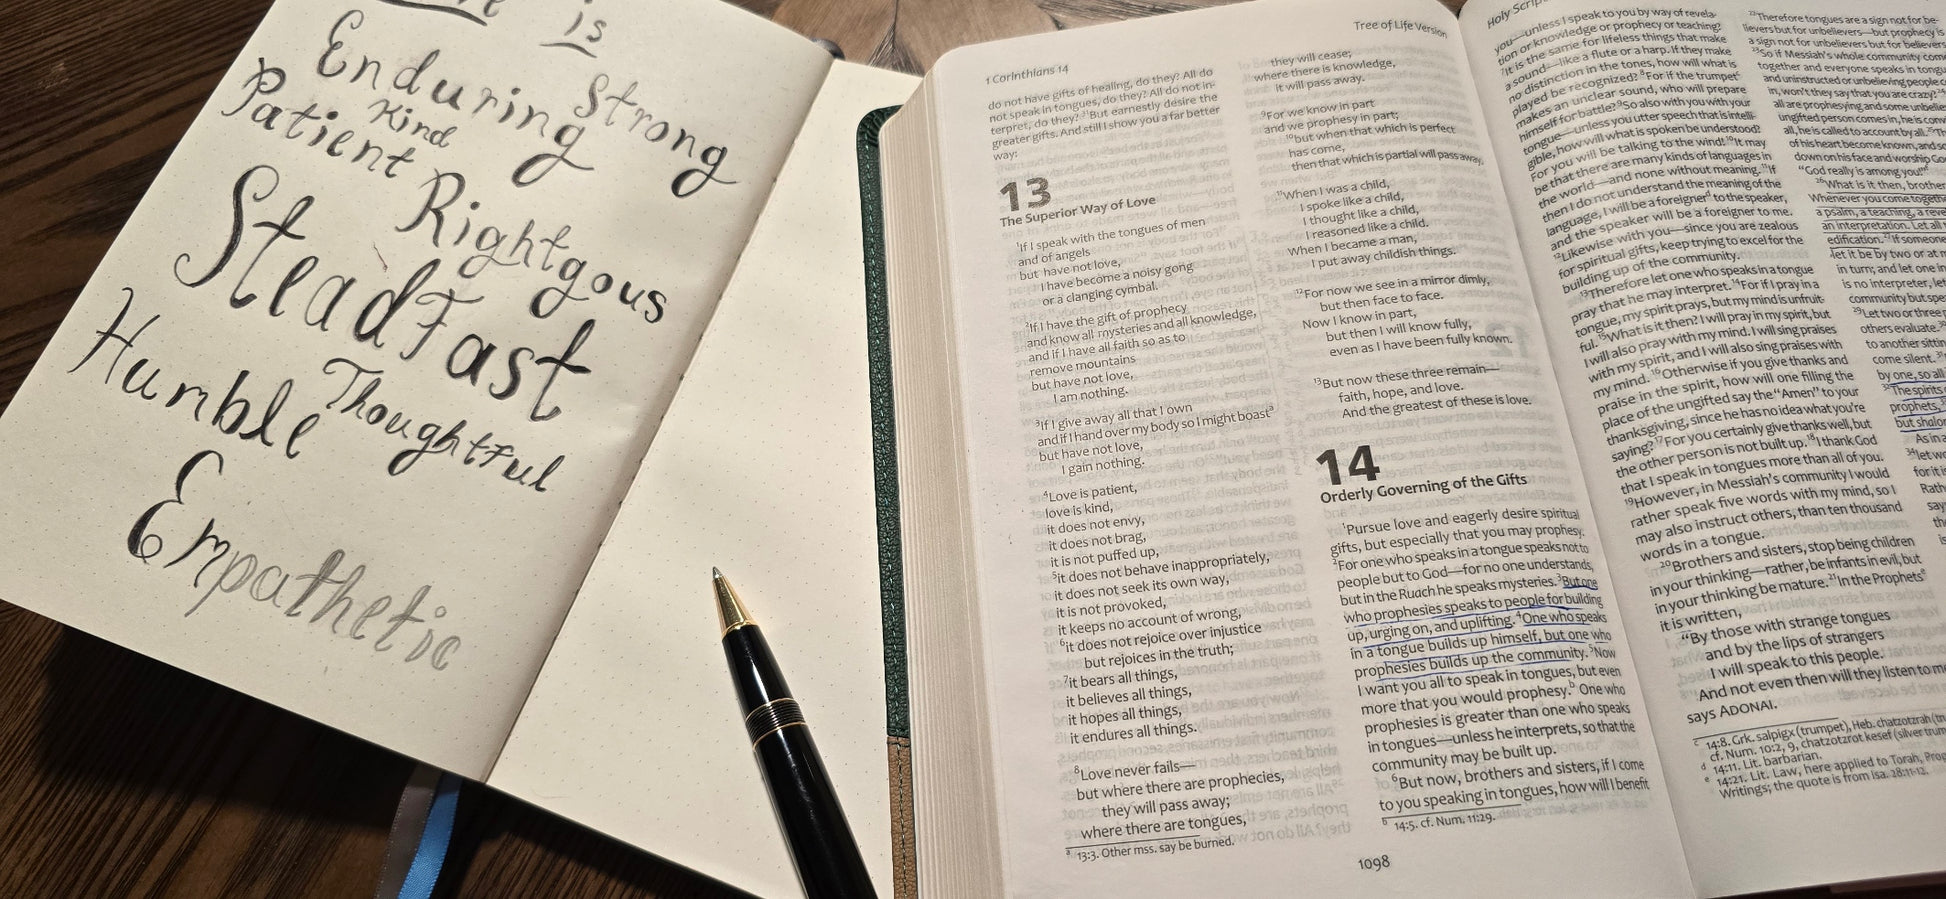 is
Enduring
Strong
Kind
Patient
Rightgous
SteadFast
Humble
Thoughtful
Empathetic
Tree of Life Version
1 Corinthians 14
do not have gifts of healing, do they? All do
not speak in tongues, do they? All do not in-
terpret, do they? ³¹But earnestly desire the
greater gifts. And still I show you a far better
way:
13
The Superior Way of Love
¹If I speak with the tongues of men
and of angels
but have not love,
I have become a noisy gong
or a clanging cymbal.
²If I have the gift of prophecy
and know all mysteries and all knowledge,
and if I have all faith so as to
remove mountains
but have not love,
I am nothing.
³If I give away all that I own
and if I hand over my body so I might boastᵃ
but have not love,
I gain nothing.
⁴Love is patient,
love is kind,
it does not envy,
it does not brag,
it is not puffed up,
⁵it does not behave inappropriately,
it does not seek its own way,
it is not provoked,
it keeps no account of wrong,
⁶it does not rejoice over injustice
but rejoices in the truth;
⁷it bears all things,
it believes all things,
it hopes all things,
it endures all things.
⁸Love never fails—
but where there are prophecies,
they will pass away;
where there are tongues,
ᵃ 13:3. Other mss. say be burned.
they will cease;
where there is knowledge,
it will pass away.
⁹For we know in part
and we prophesy in part;
¹⁰but when that which is perfect
has come,
then that which is partial will pass away.
¹¹When I was a child,
I spoke like a child,
I thought like a child,
I reasoned like a child.
When I became a man,
I put away childish things.
¹²For now we see in a mirror dimly,
but then face to face.
Now I know in part,
but then I will know fully,
even as I have been fully known.
¹³But now these three remain—
faith, hope, and love.
And the greatest of these is love.
14
Orderly Governing of the Gifts
¹Pursue love and eagerly desire spiritual
gifts, but especially that you may prophesy.
²For one who speaks in a tongue speaks not to
people but to God—for no one understands,
but in the Ruach he speaks mysteries. ³But one
who prophesies speaks to people for building
up, urging on, and uplifting. ⁴One who speaks
in a tongue builds up himself, but one who
prophesies builds up the community. ⁵Now
I want you all to speak in tongues, but even
more that you would prophesy.ᵇ One who
prophesies is greater than one who speaks
in tongues—unless he interprets, so that the
community may be built up.
⁶But now, brothers and sisters, if I come
to you speaking in tongues, how will I benefit
ᵇ 14:5. cf. Num. 11:29.
1098
Holy Scrip
you—unless I speak to you by way of revela-
tion or knowledge or prophecy or teaching?
⁷It is the same for lifeless things that make
a sound—like a flute or a harp. If they make
no distinction in the tones, how will what is
played be recognized? ⁸For if the trumpetᶜ
makes an unclear sound, who will prepare
himself for battle? ⁹So also with you with your
tongue—unless you utter speech that is intelli-
gible, how will what is spoken be understood?
For you will be talking to the wind! ¹⁰It may
be that there are many kinds of languages in
the world—and none without meaning. ¹¹If
then I do not understand the meaning of the
language, I will be a foreignerᵈ to the speaker,
and the speaker will be a foreigner to me.
¹²Likewise with you—since you are zealous
for spiritual gifts, keep trying to excel for the
building up of the community.
¹³Therefore let one who speaks in a tongue
pray that he may interpret. ¹⁴For if I pray in a
tongue, my spirit prays, but my mind is unfruit-
ful. ¹⁵What is it then? I will pray in my spirit, but
I will also pray with my mind. I will sing praises
with my spirit, and I will also sing praises with
my mind. ¹⁶Otherwise if you give thanks and
praise in the spirit, how will one filling the
place of the ungifted say the "Amen" to your
thanksgiving, since he has no idea what you're
saying? ¹⁷For you certainly give thanks well, but
the other person is not built up. ¹⁸I thank God
that I speak in tongues more than all of you.
¹⁹However, in Messiah's community I would
rather speak five words with my mind, so I
may also instruct others, than ten thousand
words in a tongue.
²⁰Brothers and sisters, stop being children
in your thinking—rather, be infants in evil, but
in your thinking be mature. ²¹In the Prophetsᵉ
it is written,
"By those with strange tongues
and by the lips of strangers
I will speak to this people.
And not even then will they listen to me
says ADONAI.
ᶜ 14:8. Grk. salpigx (trumpet), Heb. chatzotzrah
cf. Num. 10:2, 9, chatzotzrot kesef (silver trum
ᵈ 14:11. Lit. barbarian.
ᵉ 14:21. Lit. Law, here applied to Torah, Prop
Writings; the quote is from Isa. 28:11-12.
²²Therefore tongues are a sign not for be-
lievers but for unbelievers—but prophecy is
a sign not for unbelievers but for believers
²³So if Messiah's whole community com
together and everyone speaks in tongu
and uninstructed or unbelieving people c
in, won't they say that you are crazy? ²⁴
all are prophesying and some unbelie
ungifted person comes in, he is conv
all, he is called to account by all. ²⁵Th
of his heart become known, and so
down on his face and worship Go
"God really is among you!"
²⁶What is it then, brother
Whenever you come togethe
a psalm, a teaching, a reve
an interpretation. Let all
edification. ²⁷If someone
let it be by two or at m
in turn; and let one in
is no interpreter, let
community but spe
²⁹Let two or three p
others evaluate. ³⁰
to another sittin
come silent. ³¹
by one, so all
³²The spirits
prophets, ³³
but shalor
As in a
³⁴let wo
for it is
Rath
say